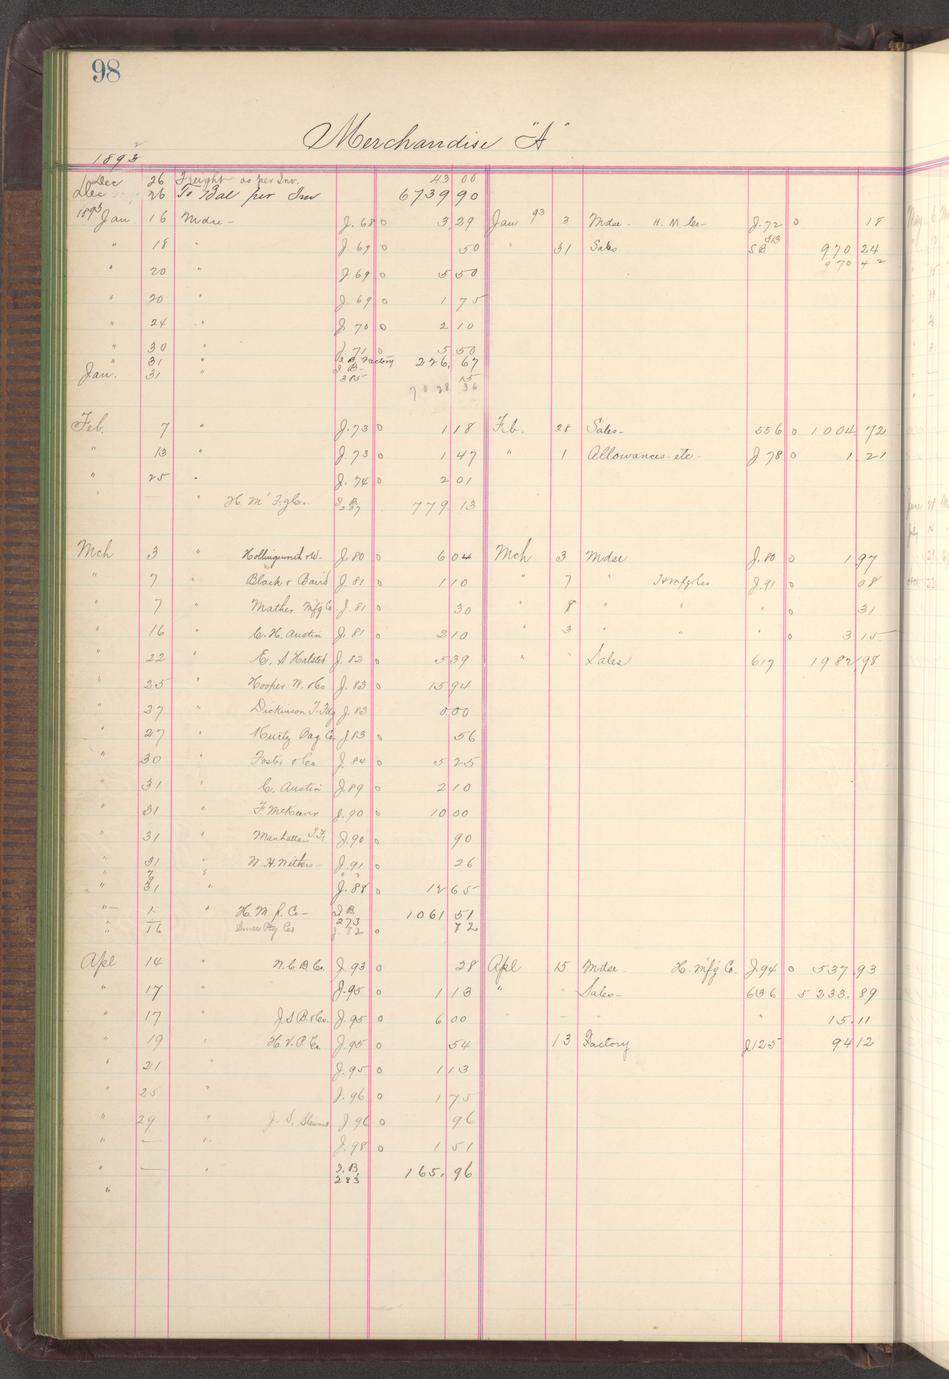 98
Merchandise "A"
1892
Dec 26 Freight as per Inv. 43 00
Dec 26 To Bal per Inv 6739 90
1893 Jan 16 Mdse - J. 68 0 3 29 Jan 93 3 Mdse H. M. Co- J. 72 0 18
" 18 " J 69 0 50 " 31 Sales SB 513 970 24
970 42
" 20 " J 69 0 5 50
" 20 " J. 69 0 1 75
" 24 " J. 70 0 2 10
" 30 " J. 71 0 5 50
" 31 " Factory 226, 67
Jan. 31 " 315 15
7028 36
Feb. 7 " J. 73 0 1 18 Feb. 28 Sales- 556 0 1004 72
" 13 " J. 73 0 1 47 " 1 Allowances etc- J 78 0 1. 21
" 25 " J. 74 0 2 01
" — " H. M' f'g Co. 779 13
Mch 3 " J. 80 0 6 04 Mch 3 Mdse J. 80 0 1 97
" 7 " Black & Baird J. 81 0 1 10 " 7 " H mfg Co J. 91 0 08
" 7 " Mather Mfg Co J. 81 0 30 " 8 " " " 0 31
" 16 " C. H. Austin J. 81 0 2 10 " 3 " " " 0 3 15
" 22 " E. S Halsted J. 82 0 5 39 " Sales 617 1982 98
" 25 " Hooper W. & Co J. 83 0 15 94
" 27 " Dickinson J. 83 0 00
" 27 " Bag Co J 83 0 56
" 30 " Foster & Co J. 84 0 5 25
" 31 " C. Austin J. 89 0 2 10
" 31 " F. McKeever J. 90 0 10 00
" 31 " Manhattan J. 90 0 90
" 31 " W. H. Withers- J. 91 0 26
" 31 " J. 88 0 12 65
" 1 " H. M. f. Co- 273 1061 51
" 16 J. 82 0 72
Apl 14 " N. C. B Co. J. 93 0 28 Apl 15 Mdse- H. mfg Co. J. 94 0 537. 93
" 17 " J. 95 0 1 13 " Sales- 636 5233. 89
" 17 " J. S B. & Co. J. 95 0 6 00 " - " " 15. 11
" 19 " H. V. P. Co J. 95 0 54 13 Factory J 125 94 12
" 21 " J. 95 0 1 13
" 25 " J. 96 0 1 75
" 29 " J. S. J. 96 0 96
" — " J. 98 0 1 51
" — " I. B. 283 165. 96
"